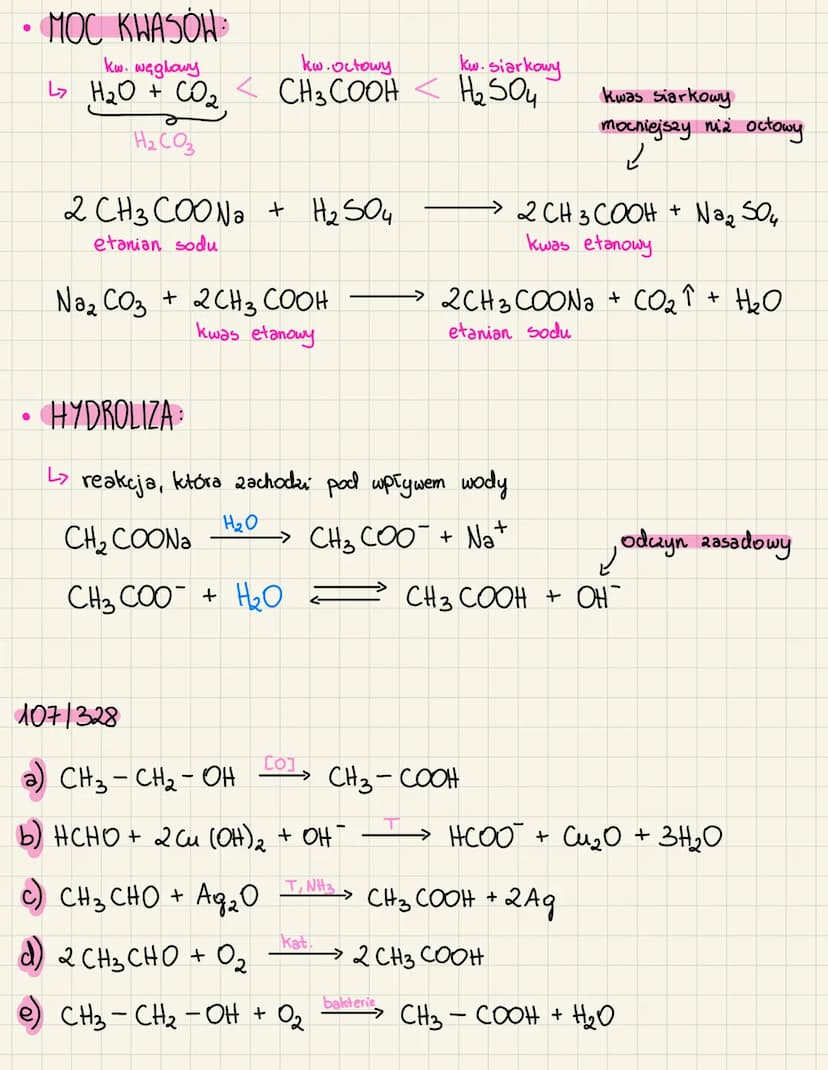 • MOC KWASÓW:
kw. węglowy kw. octowy kw. siarkowy
↳ H₂O + CO₂ < CH₃COOH < H₂SO₄
H₂CO₃
kwas siarkowy
mocniejszy niż octowy
2 CH₃COONa + H₂SO₄ → 2 CH₃COOH + Na₂SO₄
etanian sodu kwas etanowy
Na₂CO₃ + 2CH₃COOH → 2CH₃COONa + CO₂↑ + H₂O
kwas etanowy etanian sodu
• HYDROLIZA:
↳ reakcja, która zachodzi pod wpływem wody
CH₂COONa H₂O → CH₃COO⁻ + Na⁺
odczyn zasadowy
CH₃COO⁻ + H₂O ⇌ CH₃COOH + OH⁻
107/328
a) CH₃ – CH₂ – OH [O] → CH₃ – COOH
b) HCHO + 2Cu(OH)₂ + OH⁻ T → HCOO⁻ + Cu₂O + 3H₂O
c) CH₃CHO + Ag₂O T, NH₃ → CH₃COOH + 2Ag
d) 2CH₃CHO + O₂ kat. → 2CH₃COOH
e) CH₃ – CH₂ – OH + O₂ bakterie → CH₃ – COOH + H₂O